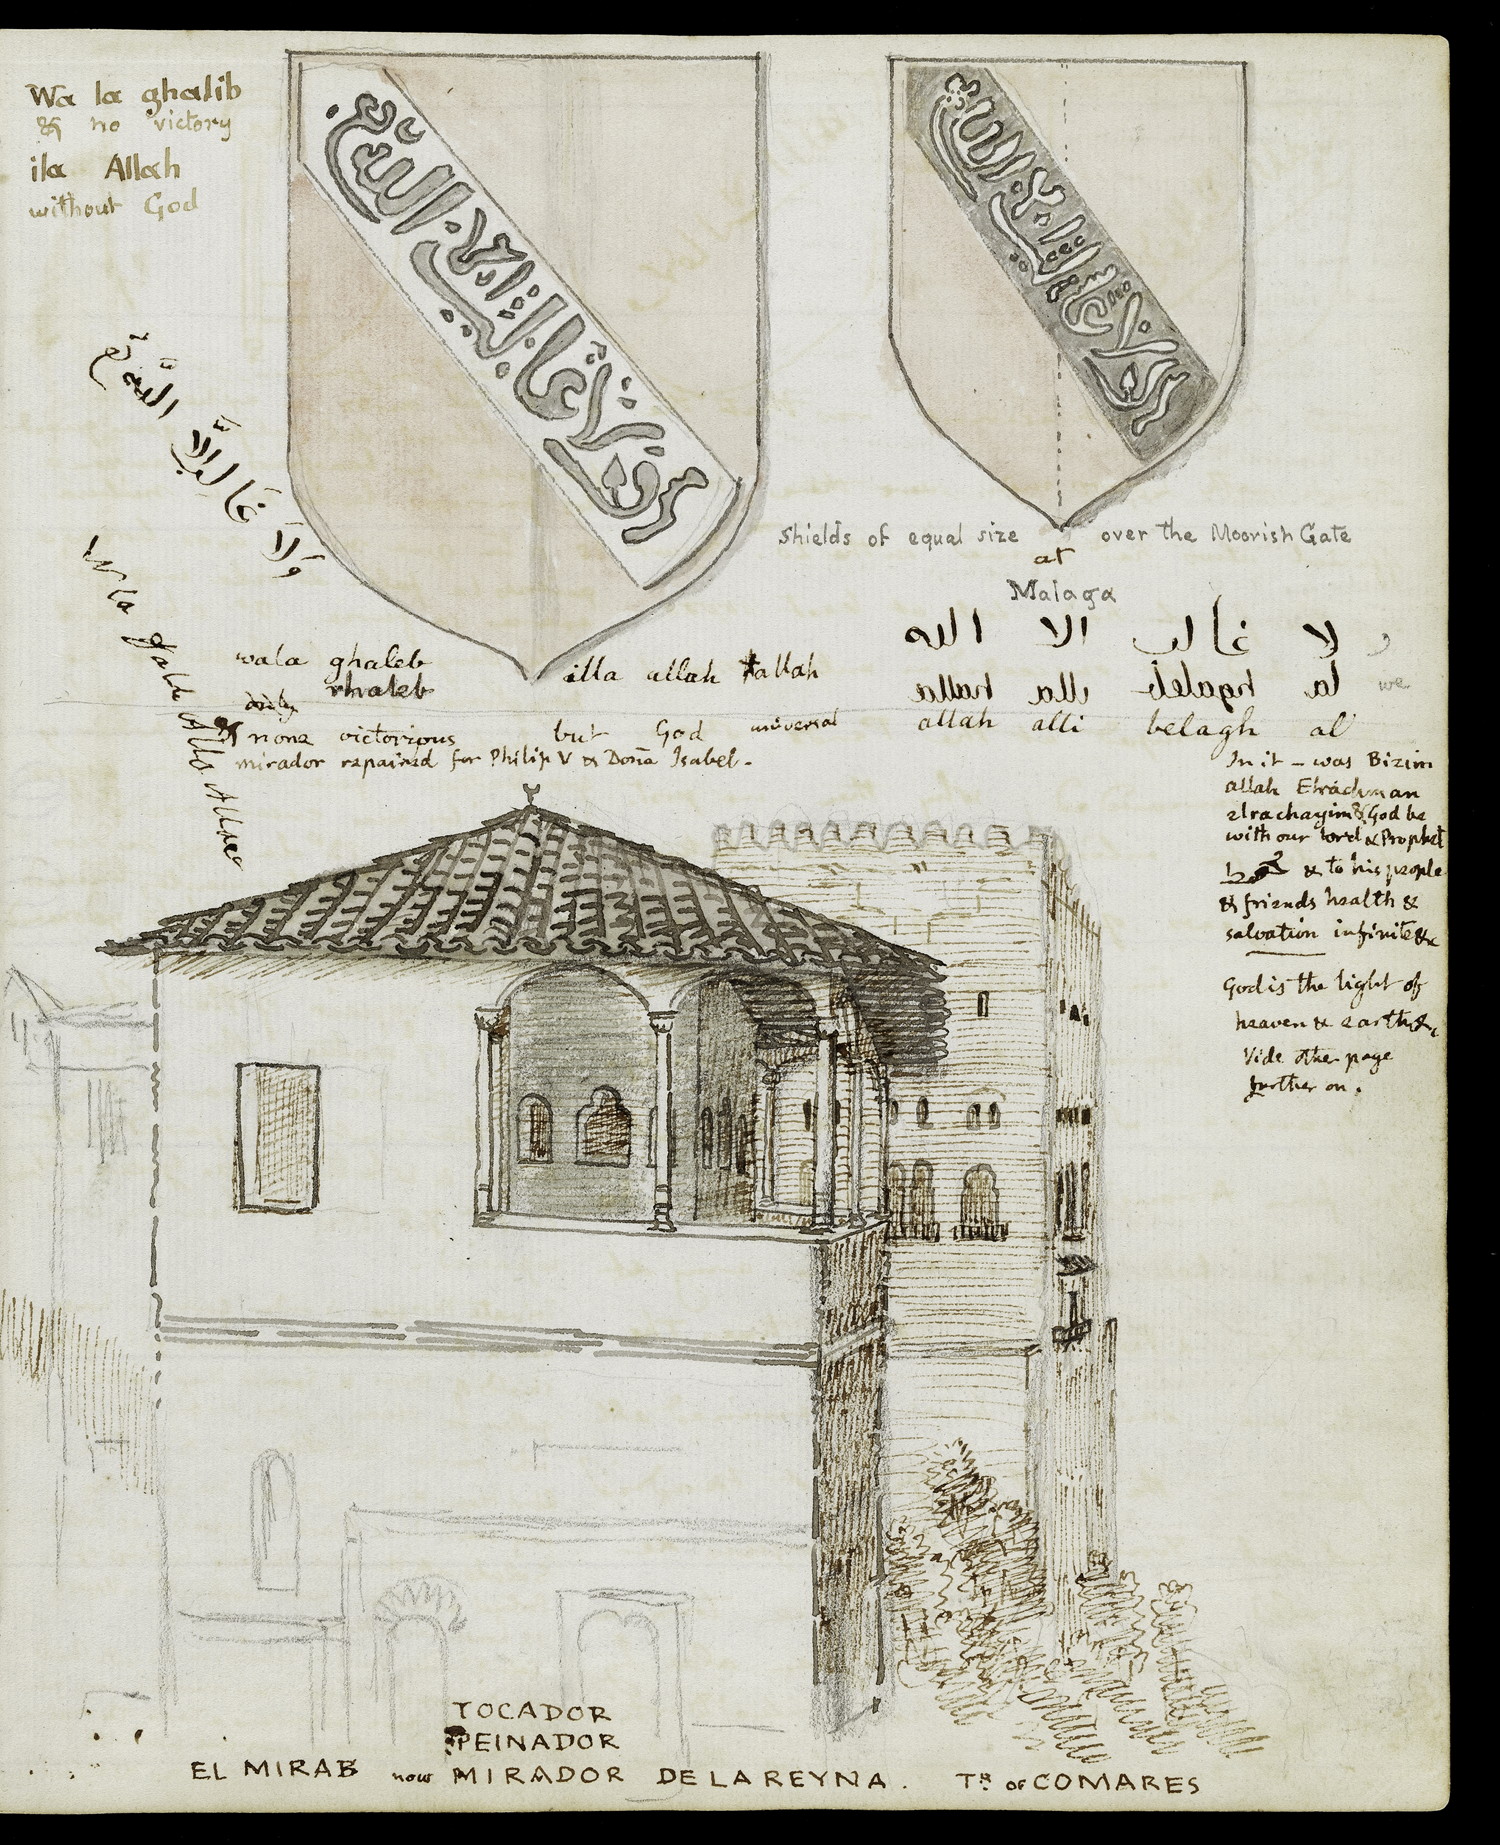 Wa la ghalib
& no victory
ila Allah
without God
ولا غالب الا الله
ولَا غَالِب اِلاَّ اللّه
W la Jalib Alla Allae
Shields of equal size over the Moorish Gate
at
Malaga
wala ghaleb illa allah allah
rhaleb
only
& none victorious but God universal
mirador repaired for Philip V & Doña Isabel.
و لا غالب الا الله
we la
allah alli belagh al
In it – was Bizim
allah Elrachman
elrachayim & God be
with our lord & Prophet
& to his people
& friends health &
salvation infinite &c
God is the light of
heaven & earth &c
Vide other page
further on.
TOCADOR
PEINADOR
EL MIRAB now MIRADOR DE LA REYNA. Tr. OF COMARES